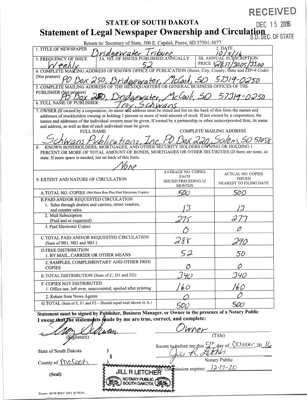 RECEIVED
DEC 15 2016
S.D. SEC. OF STATE
STATE OF SOUTH DAKOTA
Statement of Legal Newspaper Ownership and Circulation
Return to: Secretary of State, 500 E. Capitol, Pierre, SD 57501-5077
1. TITLE OF NEWSPAPER Bridgewater Tribune
2. DATE 10/1/16
3. FREQUENCY OF ISSUE Weekly
3A. NO. OF ISSUES PUBLISHED ANNUALLY 52
3B. ANNUAL SUBSCRIPTION PRICE
4. COMPLETE MAILING ADDRESS OF KNOWN OFFICE OF PUBLICATION (Street, City, County, State and ZIP+4 Code)
PO Box 250, Bridgewater, McCook, SD 57319-0250
5. COMPLETE MAILING ADDRESS OF THE HEADQUARTERS OR GENERAL BUSINESS OFFICES OF THE PUBLISHER
PO Box 250, Bridgewater, McCook, SD 57319-0250
6. FULL NAME OF PUBLISHER Troy Schwans
7. OWNER (If owned by a corporation, its name and address must be stated and also the names and
addresses of stockholders owning or holding 1 percent or more of total amount of stock. If not owned by a corporation, the
names and addresses of the individual owners must be given. If owned by a partnership or other unincorporated firm, its name
and address, as well as that of each individual must be given.
FULL NAME COMPLETE MAILING ADDRESS
Schwans Publications Inc. PO Box 220, Salem SD 57058
8. KNOWN BONDHOLDERS, MORTGAGEES, AND OTHER SECURITY HOLDERS OWNING OR HOLDING 1
PERCENT OR MORE OF TOTAL AMOUNT OF BONDS, MORTGAGES OR OTHER SECURITIES (If there are none, so
state. If more space is needed, list on back of this form.
None
9. EXTENT AND NATURE OF CIRCULATION
AVERAGE NO. COPIES EACH ISSUED PRECEDING 12 MONTHS
ACTUAL NO. COPIES ISSUED NEAREST TO FILING DATE
A. TOTAL NO. COPIES 500 500
B. PAID AND/OR REQUESTED CIRCULATION
1. Sales through dealers and carriers, street vendors, and counter sales 13 13
2. Mail Subscription (Paid and/or requested) 275 277
3. Paid Electronic Copies 0 0
C. TOTAL PAID AND/OR REQUESTED CIRCULATION
(Sum of 9B1, 9B2 and 9B3) 288 290
D. FREE DISTRIBUTION
1. BY MAIL, CARRIER OR OTHER MEANS 52 50
2. SAMPLES, COMPLIMENTARY AND OTHER FREE COPIES 0 0
E. TOTAL DISTRIBUTION (Sum of C, D1 and D2) 340 340
F. COPIES NOT DISTRIBUTED
1. Office use, left over, unaccounted, spoiled after printing 160 160
2. Return from News Agents 0 0
G. TOTAL (Sum of E, F1 and F2 – Should equal total shown in A.) 500 500
Statement must be signed by Publisher, Business Manager, or Owner in the presence of a Notary Public
I swear that the statements made by me are true, correct, and complete:
Owner
(Signature) (Title)
State of South Dakota
Sworn to before me this 5th day of October, 2016
County of McCook
Notary Public
(Seal)
expires: 12-17-20
JILL R LETCHER
NOTARY PUBLIC
SOUTH DAKOTA